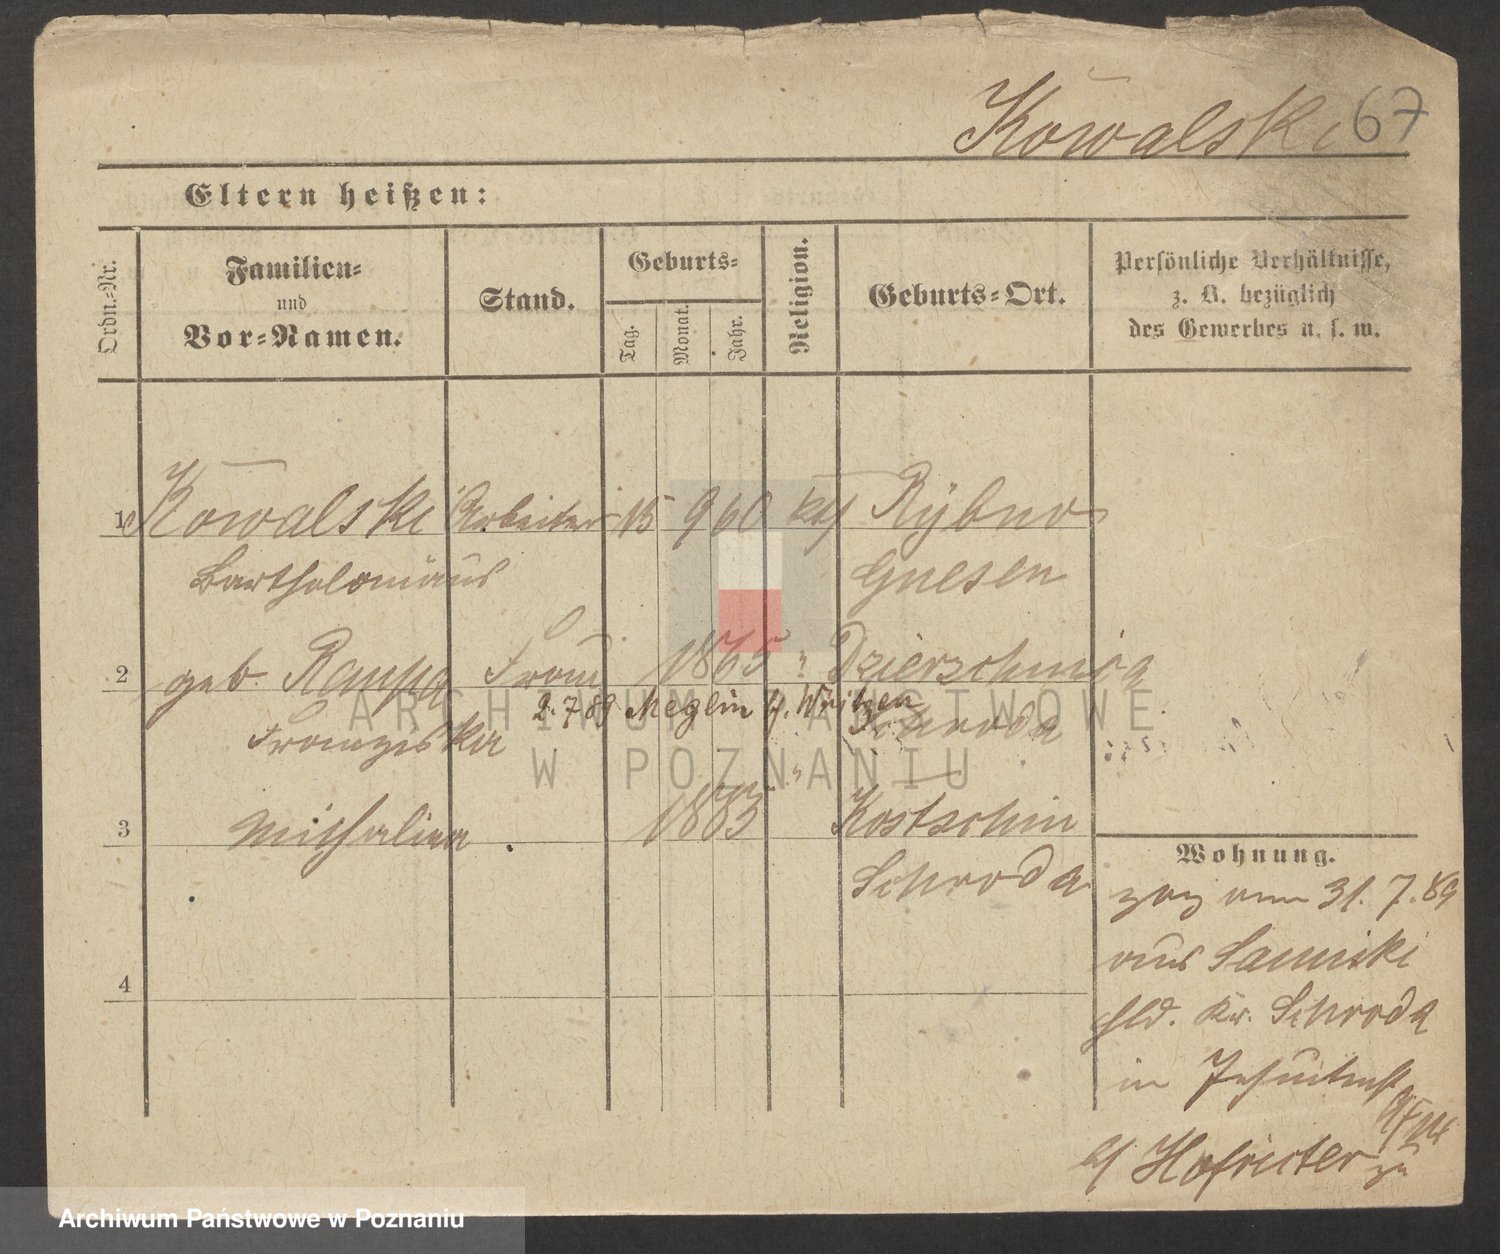 Kowalski 67
Eltern heißen:
Ordn.-Nr.
Familien-
und
Vor-Namen.
Stand.
Geburts-
Tag.
Monat.
Jahr.
Religion.
Geburts-Ort.
Persönliche Verhältnisse,
z. B. bezüglich
des Gewerbes u. s. w.
1 Kowalski Arbeiter 15 9 60 kth Rybno
Bartholomäus Gnesen
2 geb. Raupa Frau 1865 " Dzierzchnica
2.7.89 Meglin b. Writzen
Franziska Schroda
3 Michalina 1883 " Kostschin
Schroda
4
Wohnung.
zog am 31.7.89
aus Sanniki
Hld. Kr. Schroda
in Jesuitenstr
b/ Hofrichter zu
ARCHIWUM PAŃSTWOWE
W POZNANIU
Archiwum Państwowe w Poznaniu